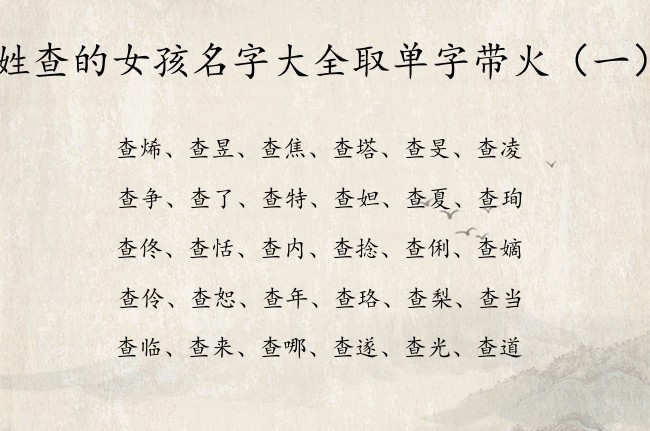 姓查的女孩名字大全取单字带火（一）
查烯、查昱、查焦、查塔、查旻、查凌
查争、查了、查特、查妲、查夏、查珣
查佟、查恬、查内、查捻、查俐、查嫡
查伶、查恕、查年、查珞、查梨、查当
查临、查来、查哪、查遂、查光、查道